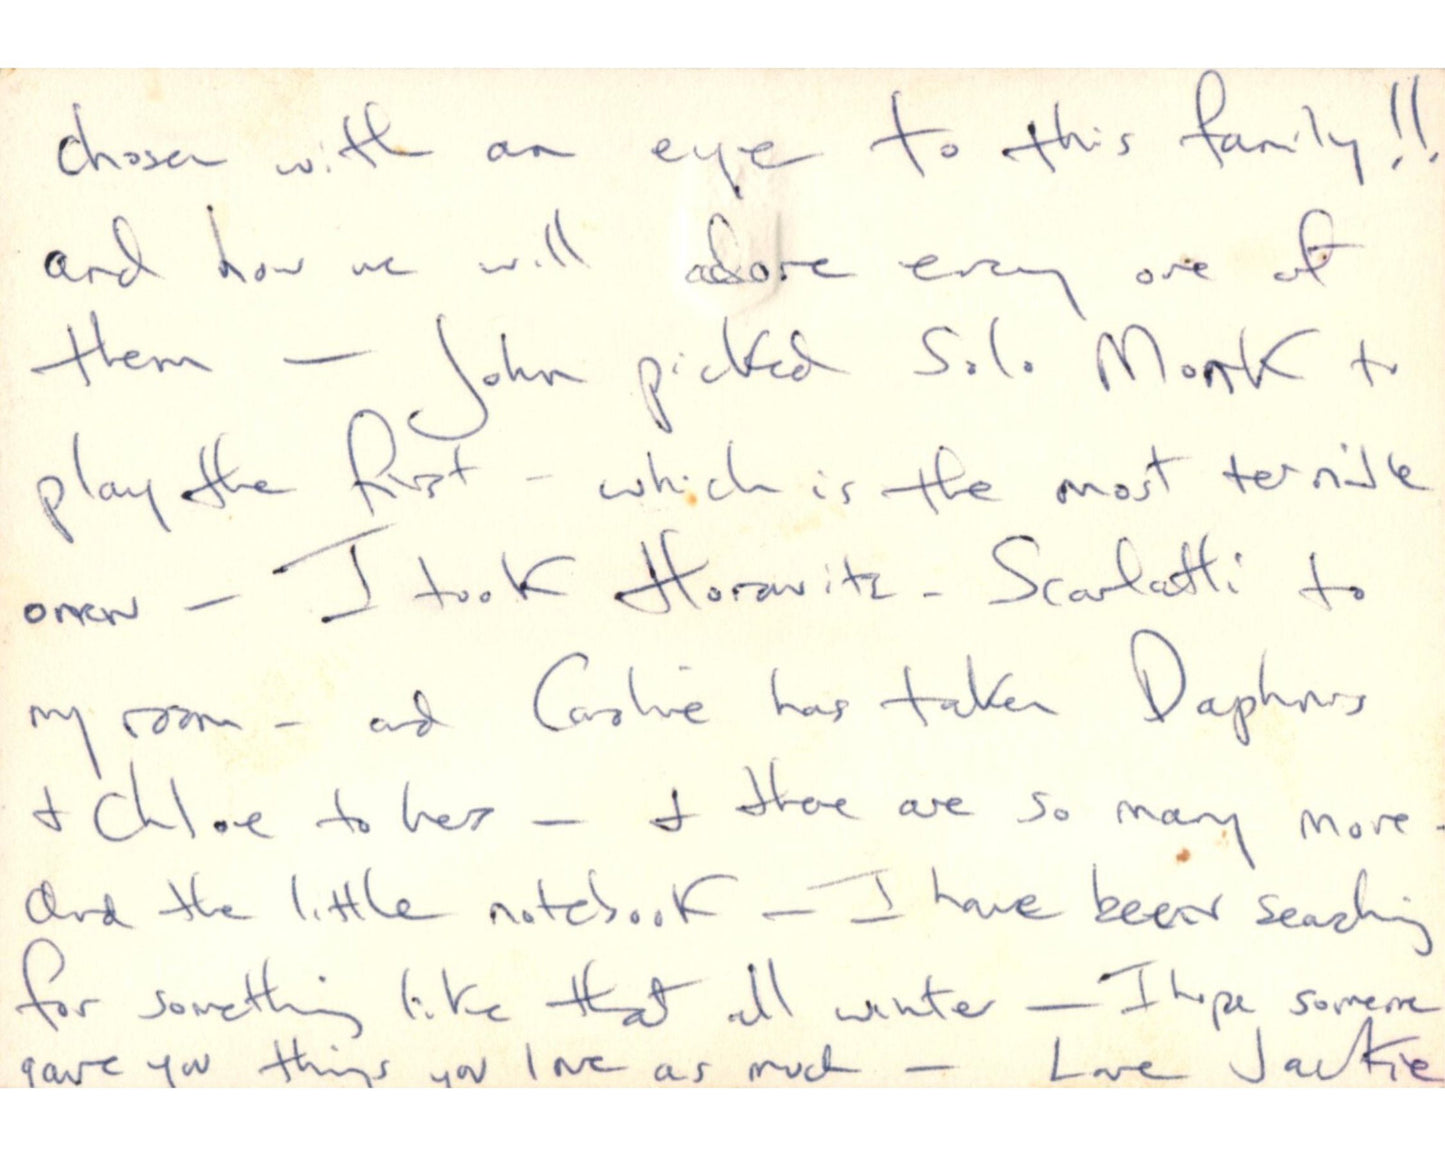 chosen with an eye to this family!!
and how we will adore every one of
them — John picked Solo Monk to
play the first - which is the most terrible
omen — I took Horowitz - Scarlatti to
my room - and Caroline has taken Daphnis
+ Chloe to hers — + there are so many more -
and the little notebook — I have been searching
for something like that all winter — I hope someone
gave you things you love as much — Love Jackie